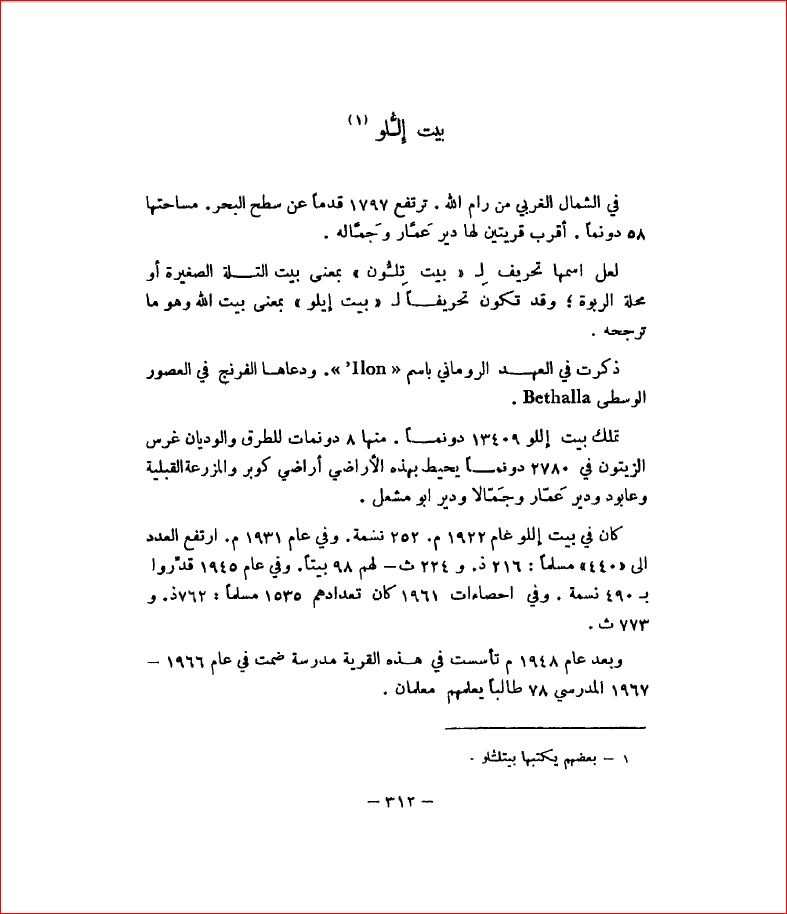 بيت إللُّو (١)
في الشمال الغربي من رام الله . ترتفع ١٧٩٧ قدماً عن سطح البحر. مساحتها
٥٨ دونماً . أقرب قريتين لها دير عَمَّار وجَمَّاله .
لعل اسمها تحريف لِـ « بيت تِلـُّون » بمعنى بيت التـــلة الصغيرة أو
محلة الربوة ؛ وقد تكون تحريفـــاً لـ « بيت إيلو » بمعنى بيت الله وهو ما
ترجحه .
ذكرت في العهـــد الروماني باسم « Ilon' ». ودعاهـا الفرنج في العصور
الوسطى Bethalla .
تملك بيت إللو ١٣٤٠٩ دونمـــاً . منها ٨ دونمات للطرق والوديان غرس
الزيتون في ٢٧٨٠ دونمـــاً يحيط بهذه الأراضي أراضي كوبر والمزرعة القبلية
وعابود ودير عَمّار وجَمّالا ودير ابو مشعل .
كان في بيت إللو عام ١٩٢٢ م. ٢٥٢ نسمة. وفي عام ١٩٣١ م. ارتفع العدد
الى «٤٤٠» مسلماً : ٢١٦ ذ. و ٢٢٤ ث – لهم ٩٨ بيتاً. وفي عام ١٩٤٥ قدّروا
بـ ٤٩٠ نسمة . وفي احصاءات ١٩٦١ كان تعدادهم ١٥٣٥ مسلماً : ٧٦٢ذ. و
٧٧٣ ث .
وبعد عام ١٩٤٨ م تأسست في هـذه القرية مدرسة ضمت في عام ١٩٦٦ –
١٩٦٧ المدرسي ٧٨ طالباً يعلمهم معلمان .
١ – بعضهم يكتبها بيتللّو .
– ٣١٢ –